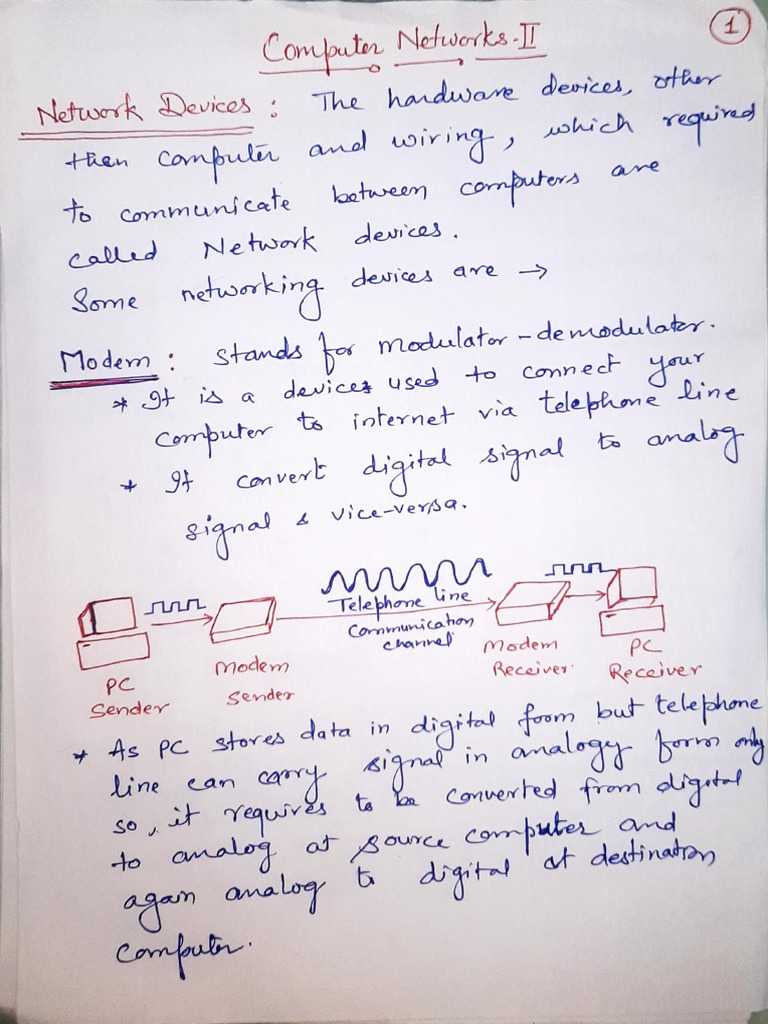 1
Computer Networks-II
Network Devices : The hardware devices, other
then computer and wiring, which required
to communicate between computers are
called Network devices.
Some networking devices are →
Modem : Stands for modulator-demodulator.
* It is a devices used to connect your
computer to internet via telephone line
* It convert digital signal to analog
signal & vice-versa.
Telephone line
Communication
channel
PC
Sender
Modem
Sender
Modem
Receiver
PC
Receiver
* As PC stores data in digital form but telephone
line can carry signal in analogy form only
so, it requires to be converted from digital
to analog at source computer and
again analog to digital at destination
computer.